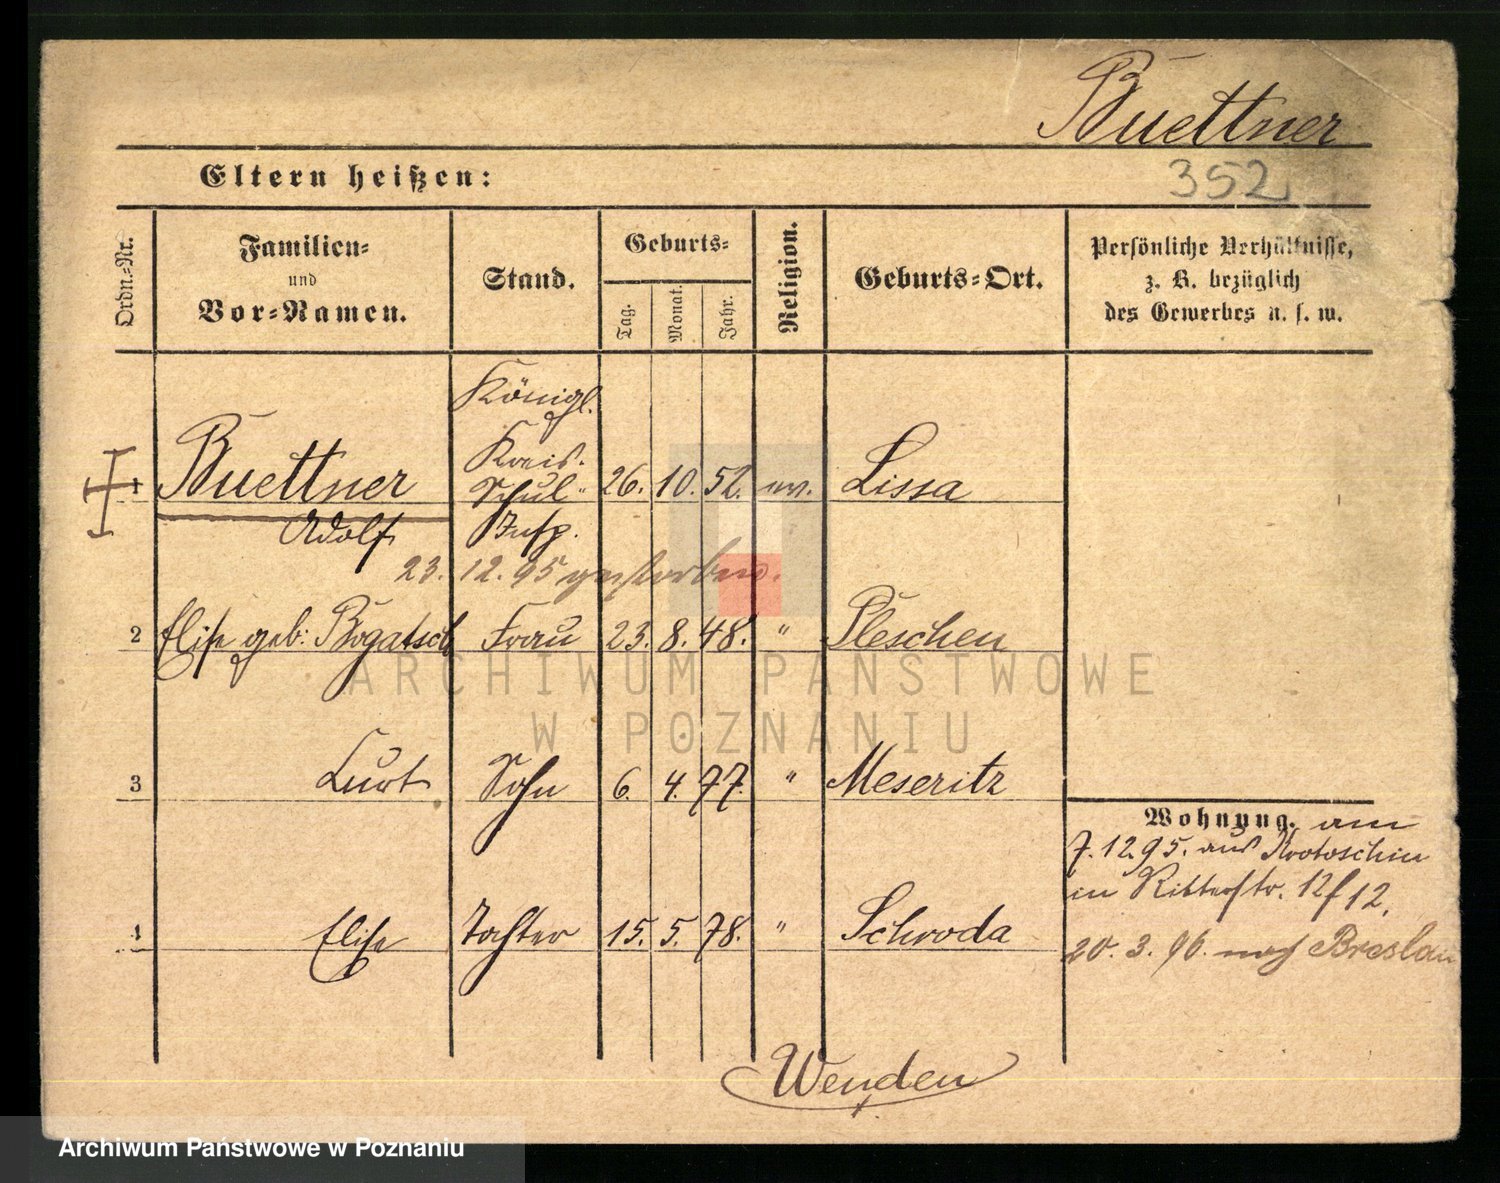 Buettner
352
Eltern heißen:
Ordn.-Nr.
Familien-
und
Vor-Namen.
Stand.
Geburts-
Tag.
Monat.
Jahr.
Religion.
Geburts-Ort.
Persönliche Verhältnisse,
z. B. bezüglich
des Gewerbes u. s. w.
Königl.
Kreis-
1 Buettner Schul- 26. 10. 52. ev. Lissa
Adolf Insp.
23. 12. 95 gestorben.
2 Elise geb: Bogatsch Frau 23. 8. 48. " Pleschen
ARCHIWUM PAŃSTWOWE
W POZNANIU
3 Curt Sohn 6. 4. 77. " Meseritz
Wohnung. am
7. 12. 95. aus Krotoschin
in Ritterstr. 12/12.
4 Elise Tochter 15. 5. 78. " Schroda
20. 3. 96. nach Breslau
Wenden
Archiwum Państwowe w Poznaniu